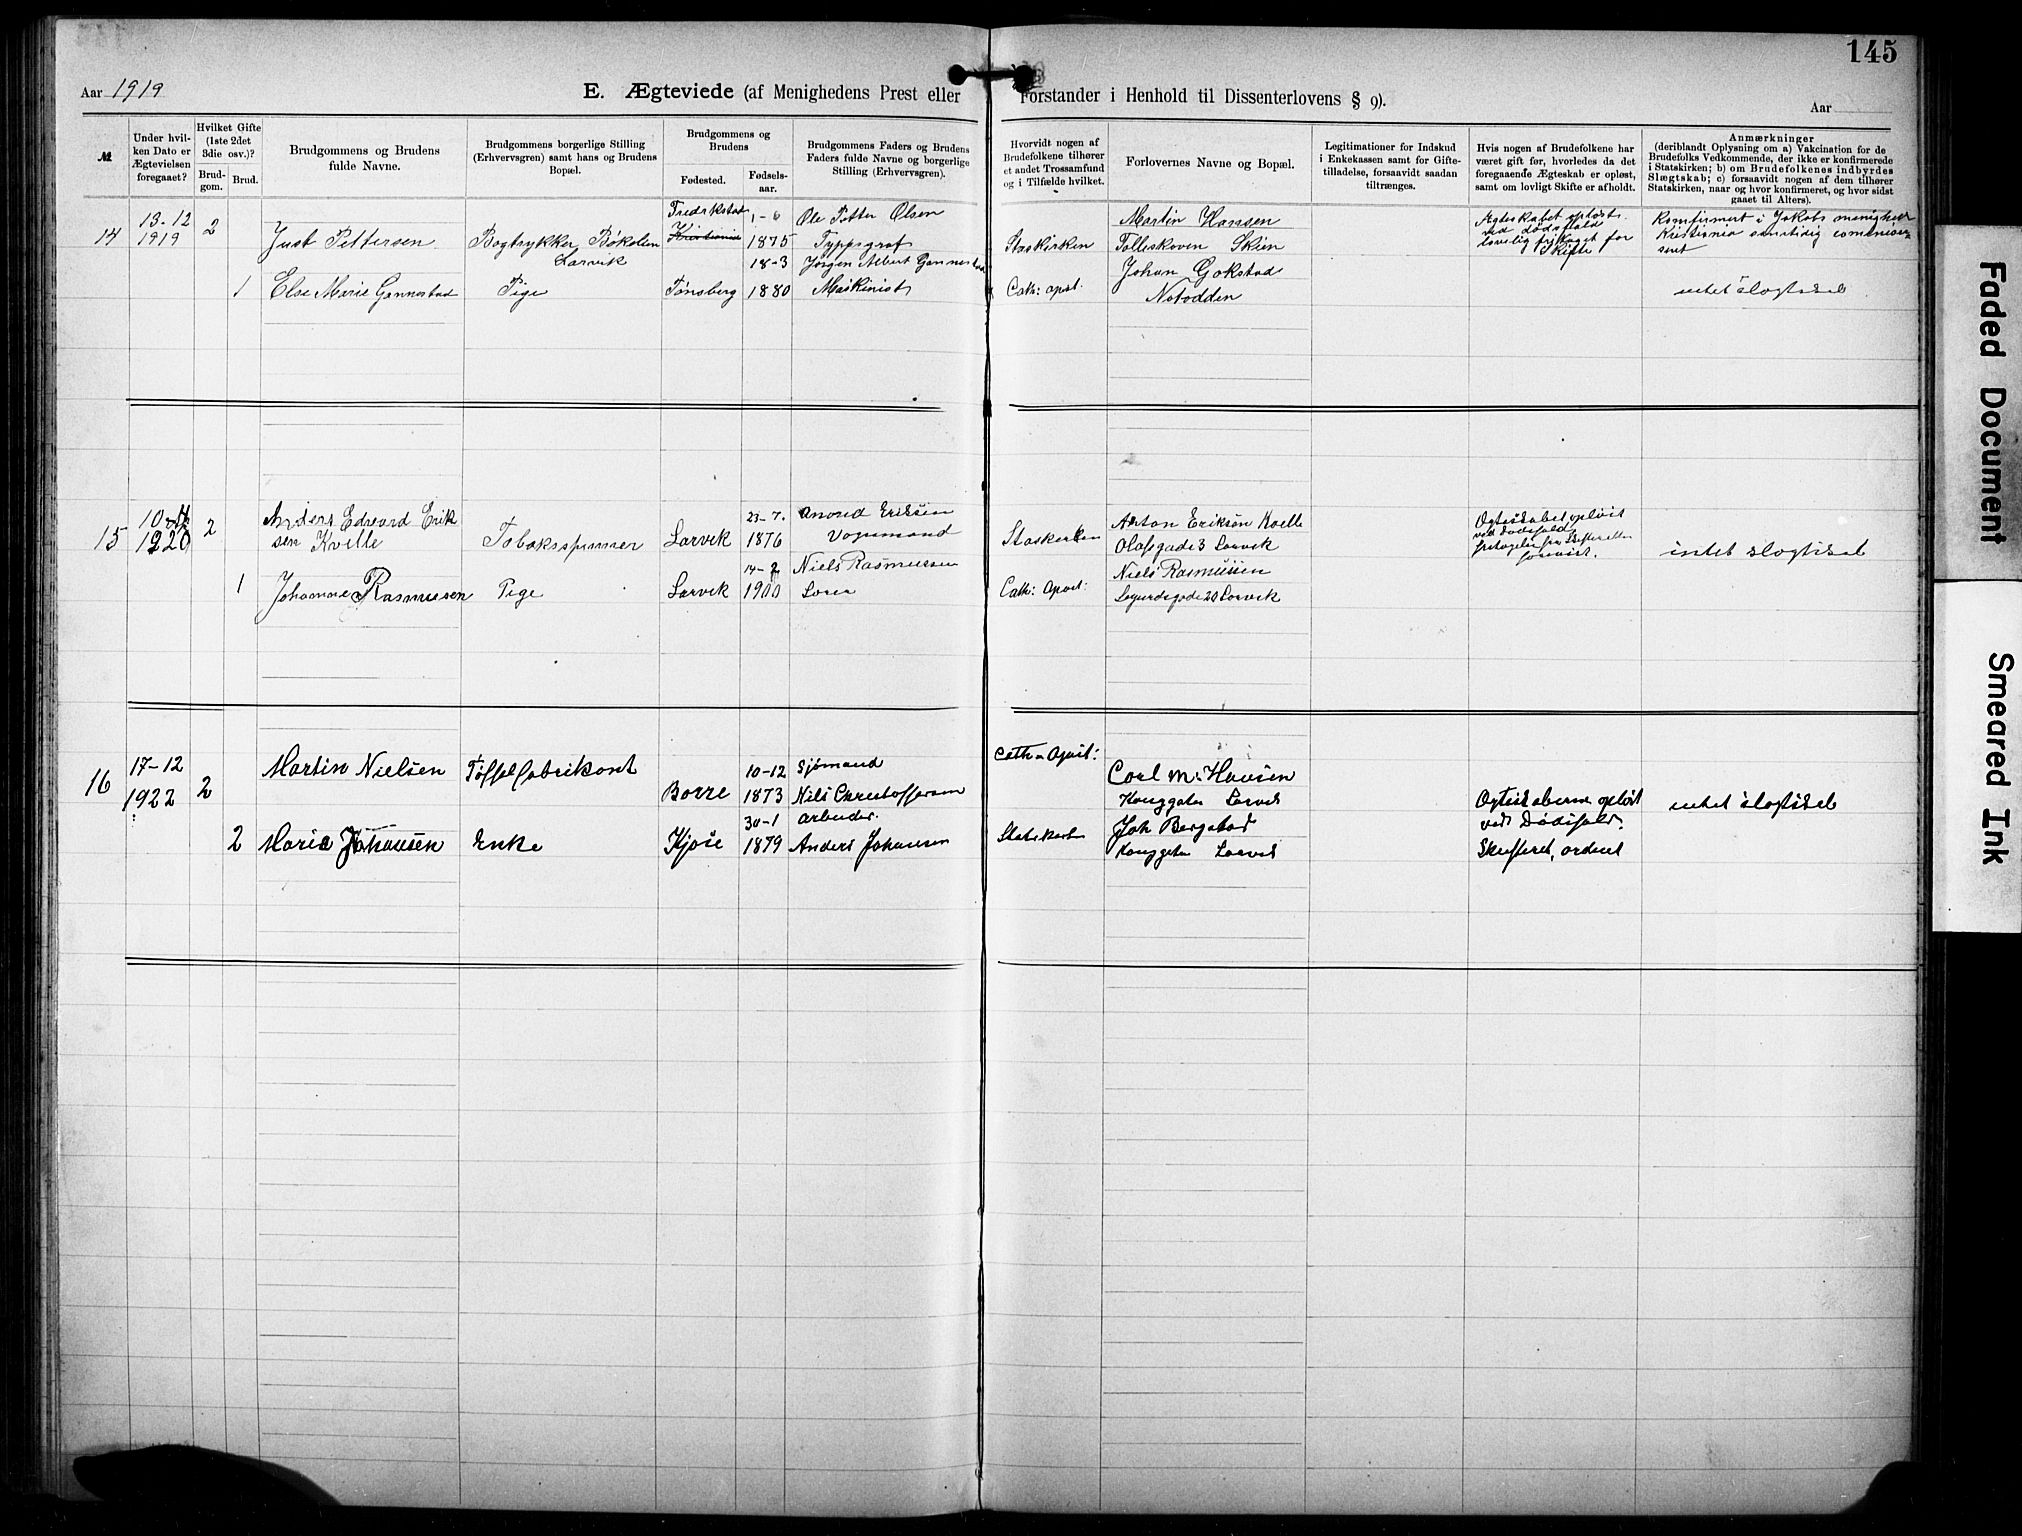 145
Aar 1919
E. Ægteviede (af Menighedens Prest eller Forstander i Henhold til Dissenterlovens § 9).
Aar
№
Under hvil-
ken Dato er
Ægtevielsen
foregaaet?
Hvilket Gifte
(1ste 2det
3die osv.)?
Brud-
gom.
Brud.
Brudgommens og Brudens
fulde Navne.
Brudgommens borgerlige Stilling
(Erhvervsgren) samt hans og Brudens
Bopæl.
Brudgommens og
Brudens
Fødested.
Fødsels-
aar.
Brudgommens Faders og Brudens
Faders fulde Navne og borgerlige
Stilling (Erhvervsgren).
Hvorvidt nogen af
Brudefolkene tilhører
et andet Trossamfund
og i Tilfælde hvilket.
Forlovernes Navne og Bopæl.
Legitimationer for Indskud
i Enkekassen samt for Gifte-
tilladelse, forsaavidt saadan
tiltrænges.
Hvis nogen af Brudefolkene har
været gift før, hvorledes da det
foregaaende Ægteskab er opløst,
samt om lovligt Skifte er afholdt.
Anmærkninger
(deriblandt Oplysning om a) Vakcination for de
Brudefolks Vedkommende, der ikke er konfirmerede
i Statskirken; b) om Brudefolkenes indbyrdes
Slægtskab; c) forsaavidt nogen af dem tilhører
Statskirken, naar og hvor konfirmeret, og hvor sidst
gaaet til Alters).
14
13-12
1919
2
Just Pettersen
Bogtrykker Bøkelien
Larvik
Fredrikstad
Kristiania
1-6
1875
Ole Petter Olsen
Typograf
Staskirken
Martin Hansen
Falleskoven Skien
Ægteskabet opløst
ved dødsfald
lovelig fritaget for
Skifte
Konfirmert i Jakobs menighed
Kristiania samtidig communi-
sert
1
Else Marie Gannestad
Pige
Tønsberg
18-3
1880
Jørgen Albert Gannestad
Maskinist
Cath: apost.
Johan Gokstad
Notodden
intet slægtskab
15
1920
2
Anders Edvard Erik
sen Kvelle
Tobaksspinner
Larvik
23-7.
1876
Eriksen
Vognmand
Staskerken
Anton Eriksen Kvelle
Olafsgade 3 Larvik
intet slogtskab
1
Johanne Rasmussen
Pige
Larvik
14-2
1900
Niels Rasmussen
Cath: Apost:
Niels Rasmussen
Sigurdsgade 20 Larvik
16
17-12
1922
2
Martin Nielsen
Tøffelfabrikant
Borre
10-12
1873
Sjømand
Nils Christoffersen
Cath. Apost:
Carl M. Hansen
Kongegata Larvik
Ogteskaberne opløst
ved Dødsfald.
Skifteret, ordnet
intet slogtskab
2
Marie Johansen
Enke
Kjose
30-1
1879
arbeider.
Anders Johansen
Statskerken
Joh Bergstad
Kongegata Larvik
Faded Document
Smeared Ink